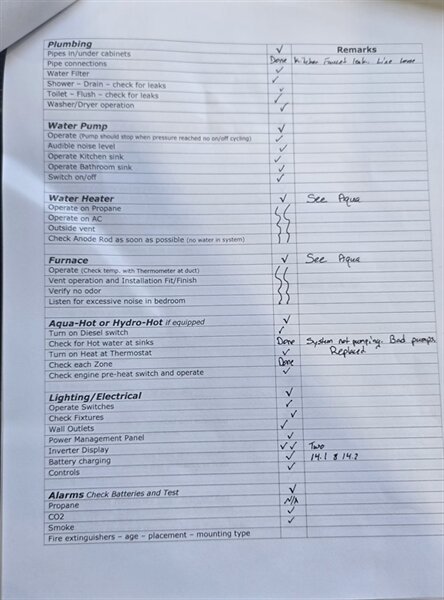 Plumbing ✓ Remarks
Pipes in/under cabinets
Pipe connections Done Kitchen Faucet leak.
Water Filter ✓
Shower – Drain – check for leaks ✓
Toilet – Flush – check for leaks ✓
Washer/Dryer operation ✓
Water Pump ✓
Operate (Pump should stop when pressure reached no on/off cycling) ✓
Audible noise level ✓
Operate Kitchen sink ✓
Operate Bathroom sink ✓
Switch on/off ✓
Water Heater ✓ See Aqua
Operate on Propane
Operate on AC
Outside vent
Check Anode Rod as soon as possible (no water in system)
Furnace ✓ See Aqua
Operate (Check temp. with Thermometer at duct)
Vent operation and Installation Fit/Finish
Verify no odor
Listen for excessive noise in bedroom
Aqua-Hot or Hydro-Hot if equipped ✓
Turn on Diesel switch ✓
Check for Hot water at sinks Done System not pumping. Bad pumps.
Turn on Heat at Thermostat ✓ Replaced
Check each Zone Done
Check engine pre-heat switch and operate ✓
Lighting/Electrical ✓
Operate Switches ✓
Check Fixtures ✓
Wall Outlets ✓
Power Management Panel ✓
Inverter Display ✓✓ Two
Battery charging ✓ 14.1 & 14.2
Controls ✓
Alarms Check Batteries and Test ✓
Propane N/A
CO2 ✓
Smoke ✓
Fire extinguishers – age – placement – mounting type